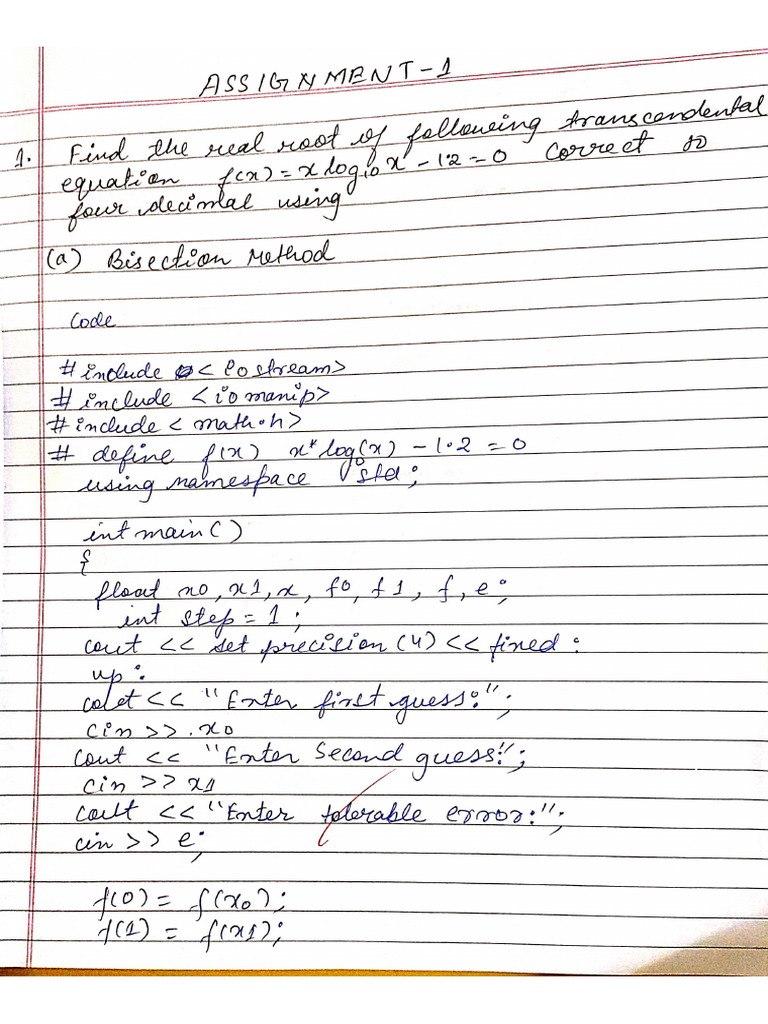 ASSIGNMENT-1
1. Find the real root of following transcendental
equation f(x) = x log₁₀ x - 1.2 = 0 correct to
four decimal using
(a) Bisection Method
Code
# include < iostream>
# include <iomanip>
# include < math.h>
# define f(x) x*log(x) - 1.2 = 0
using namespace std;
int main()
{
float x0, x1, x, f0, f1, f, e;
int step = 1;
cout << set precision (4) << fixed :
up :
cout << "Enter first guess:";
cin >> x0
cout << "Enter Second guess:";
cin >> x1
cout << "Enter tolerable error:";
cin >> e;
f(0) = f(x0);
f(1) = f(x1);